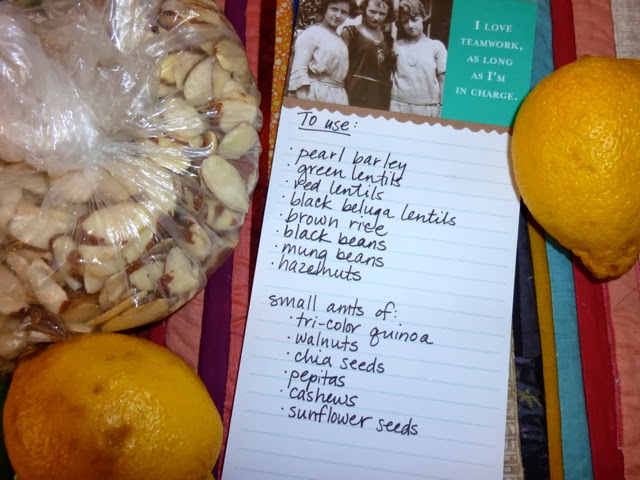 I LOVE
TEAMWORK,
AS LONG
AS I'M
IN CHARGE.
To use:
· pearl barley
· green lentils
· red lentils
· black beluga lentils
· brown rice
· black beans
· mung beans
· hazelnuts
small amts of:
· tri-color quinoa
· walnuts
· chia seeds
· pepitas
· cashews
· sunflower seeds